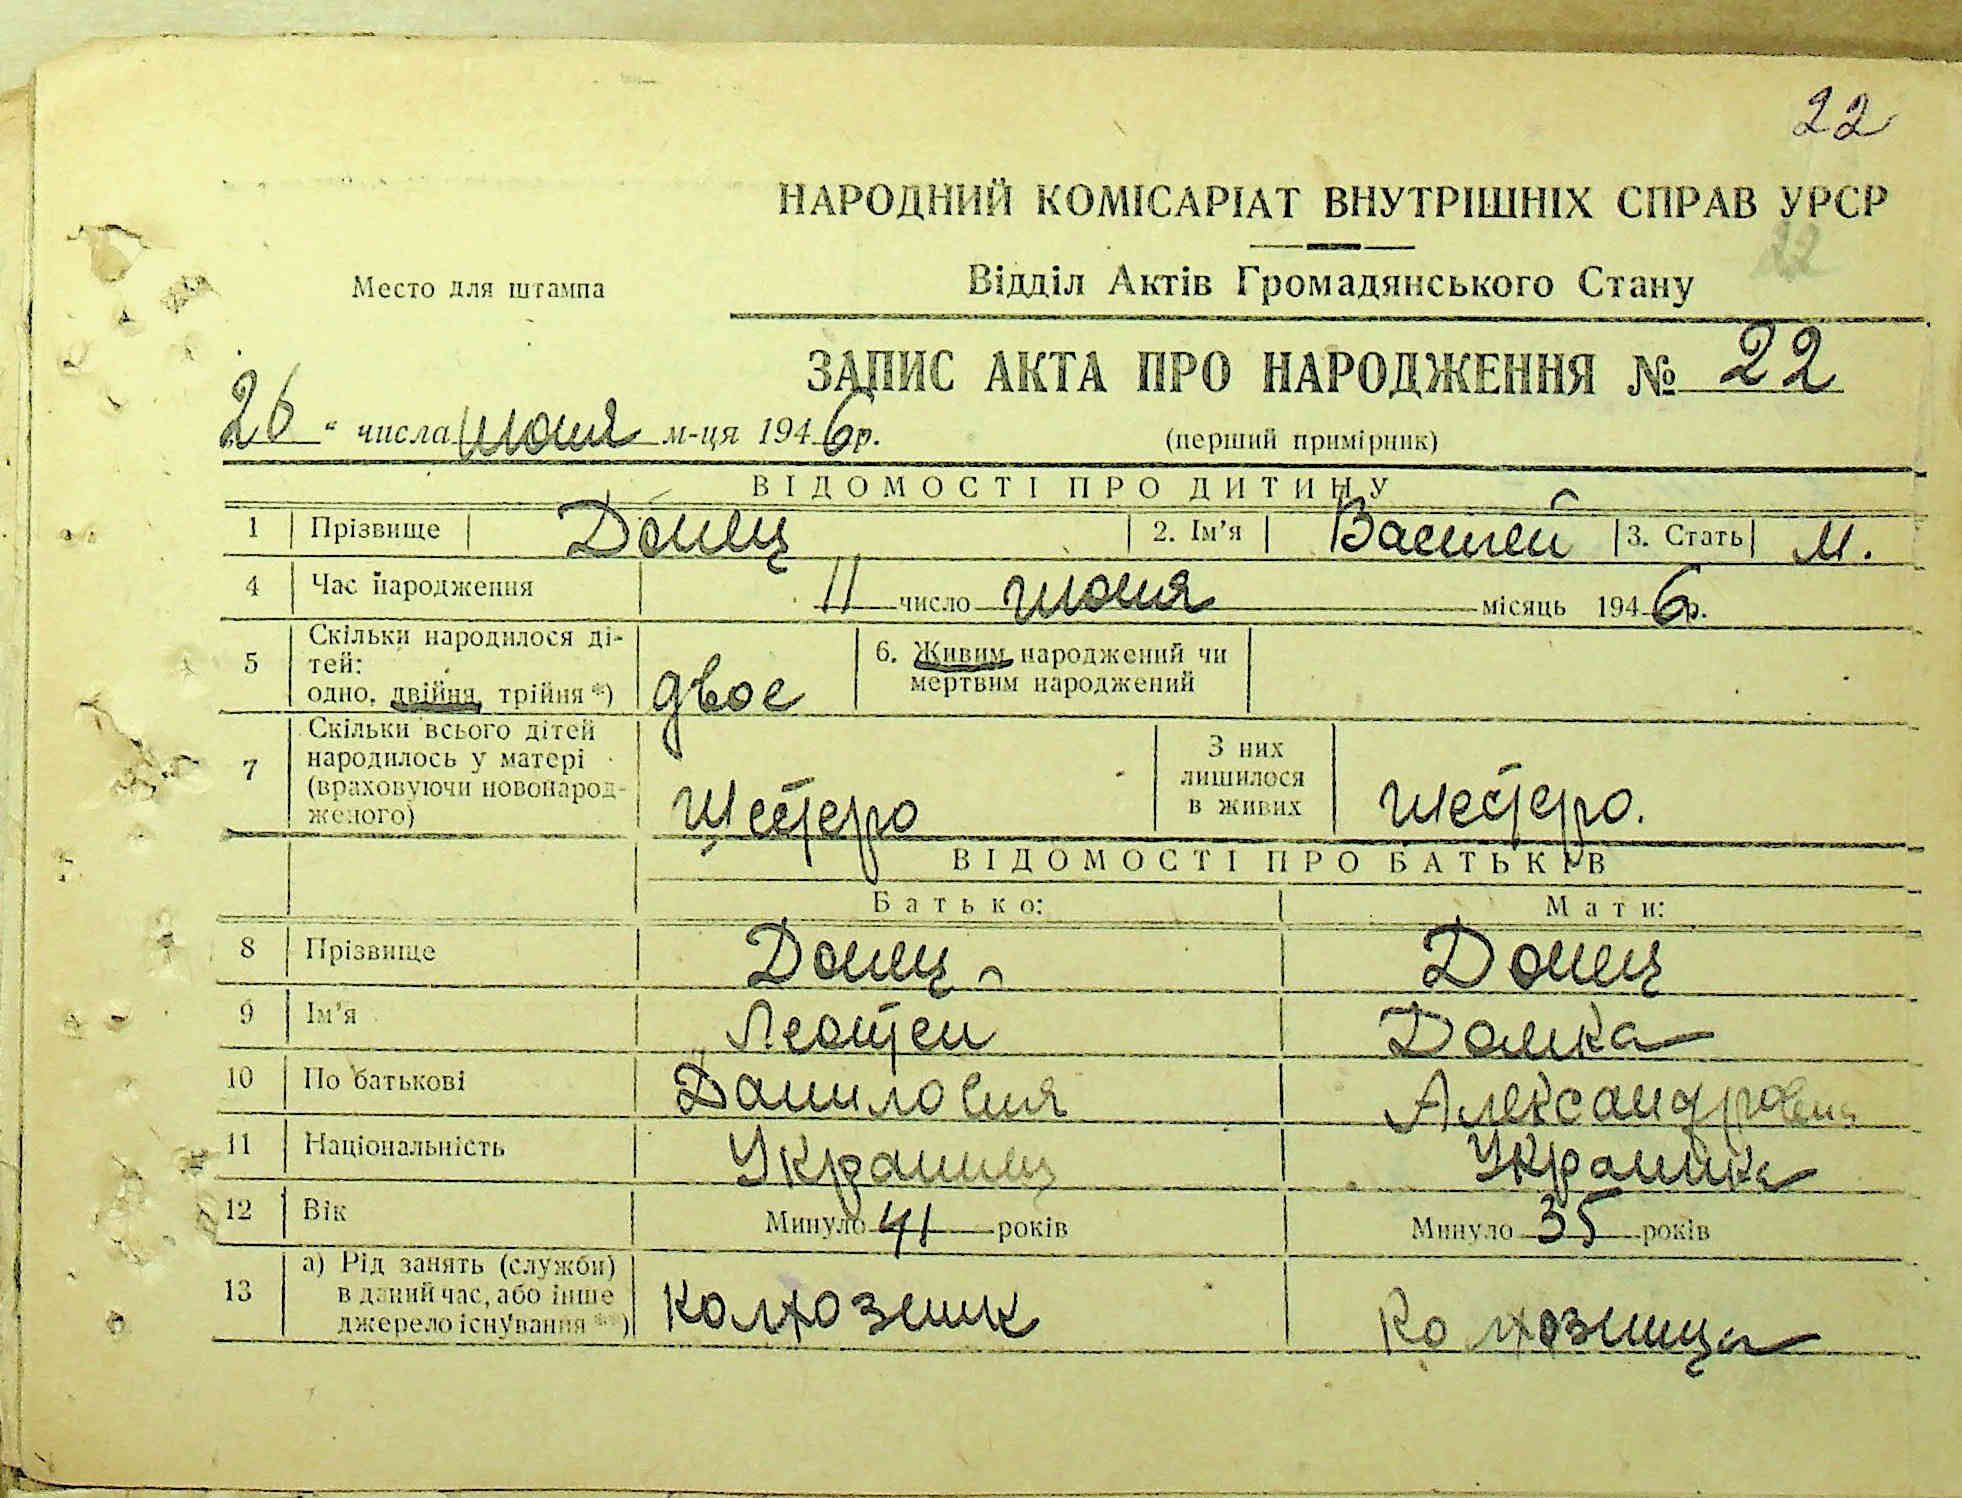 22
НАРОДНИЙ КОМІСАРІАТ ВНУТРІШНІХ СПРАВ УРСР
22
Место для штампа
Відділ Актів Громадянського Стану
ЗАПИС АКТА ПРО НАРОДЖЕННЯ № 22
26 “ числа июня м-ця 1946р.
(перший примірник)
ВІДОМОСТІ ПРО ДИТИНУ
1 Прізвище Донец 2. Ім’я Василий 3. Стать м.
4 Час народження 11 число июня місяць 1946р.
5 Скільки народилося ді-
тей:
одно, двійня, трійня *) двое
6. Живим народжений чи
мертвим народжений
7 Скільки всього дітей
народилось у матері
(враховуючи новонарод-
женого) шестеро
З них
лишилося
в живих шестеро.
ВІДОМОСТІ ПРО БАТЬКІВ
Батько: Мати:
8 Прізвище Донец Донец
9 Ім’я Домка
10 По батькові Данилович Александровна
11 Національність Украинец Украинка
12 Вік Минуло 41 років Минуло 35 років
13 а) Рід занять (служби)
в даний час, або інше
джерело існування **) колхозник колхозница